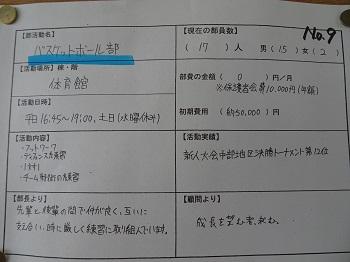 No.9
【部活動名】
バスケットボール部
【現在の部員数】
( 17 ) 人 男 ( 15 ) 女 ( 2 )
【活動場所】棟・階
体育館
部費の金額 ( 0 ) 円/月
※保護者会費10,000円(年額)
【活動日時】
平日16:45～19:00、土日(水曜休み)
初期費用 ( 約50,000 ) 円
【活動内容】
・フットワーク
・ディフェンス力練習
・1対1
・チーム戦術の練習
【活動実績】
新人大会中部地区決勝トーナメント第12位
【部長より】
先輩と後輩の間で仲が良く、互いに
支え合い、時に厳しく練習に取り組んでいます。
【顧問より】
成長を望む者、求む。